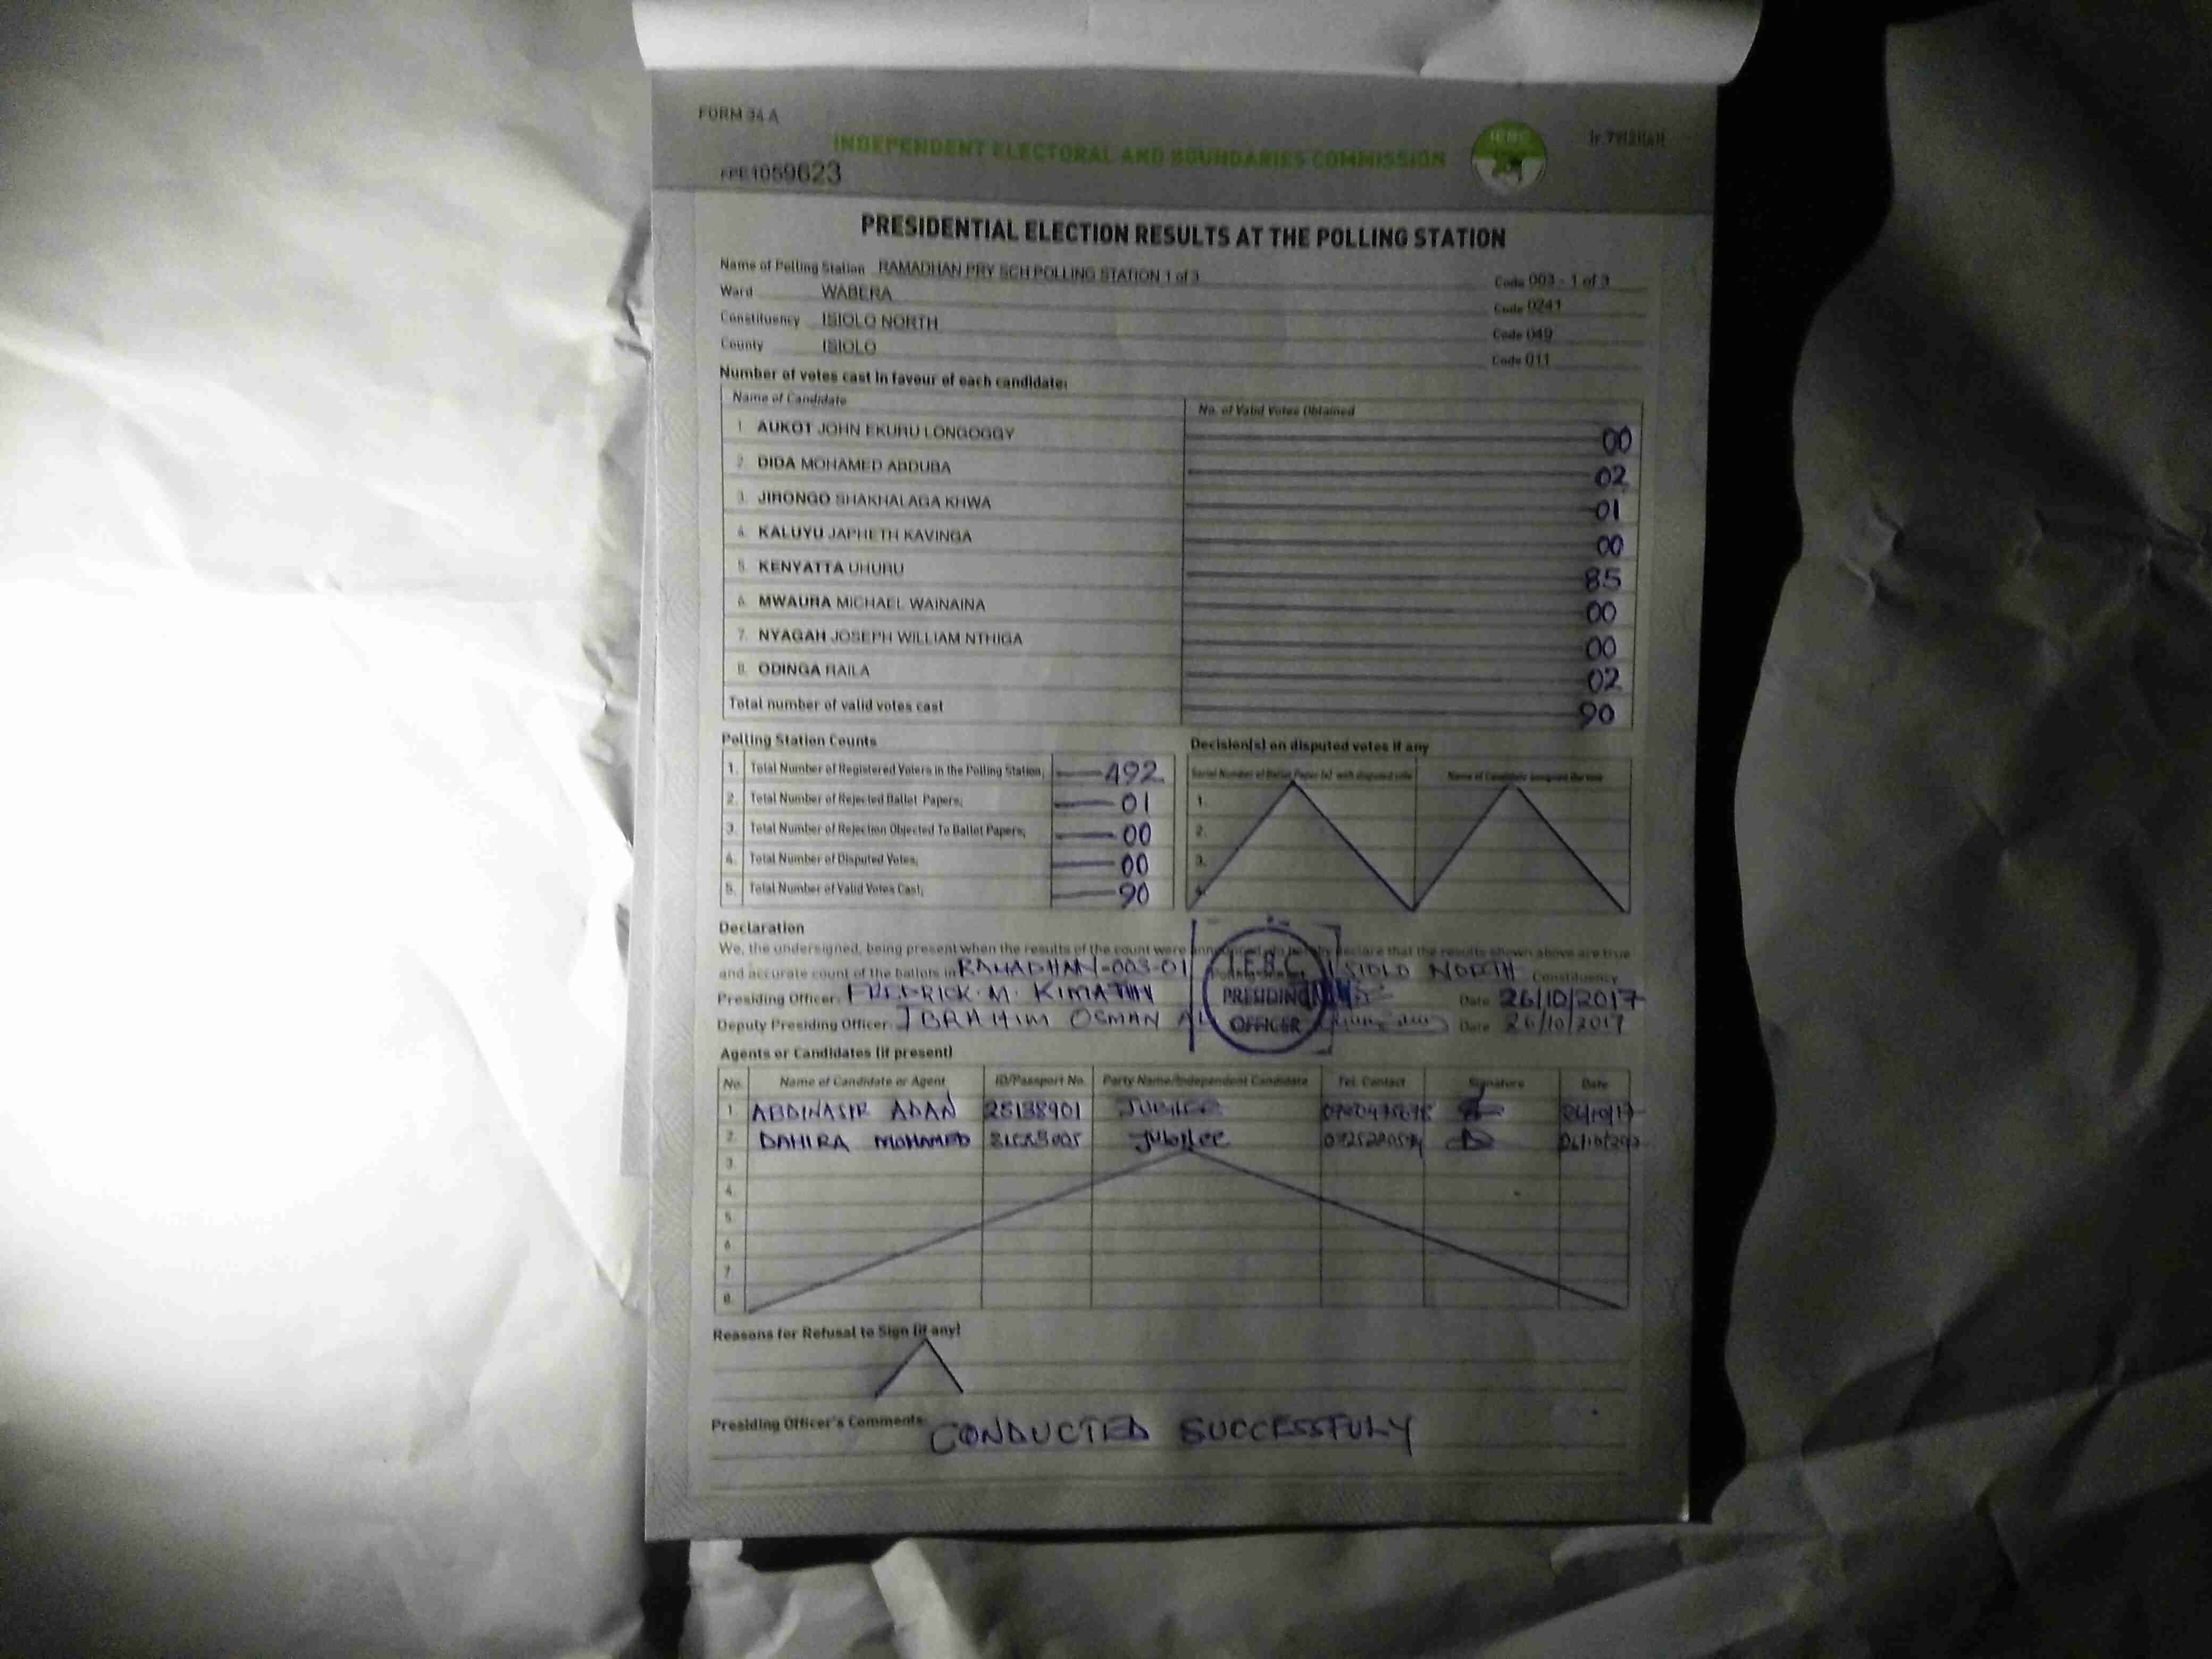 FORM 34 A
INDEPENDENT ELECTORAL AND BOUNDARIES COMMISSION
IEBC
FPE1059623
PRESIDENTIAL ELECTION RESULTS AT THE POLLING STATION
Name of Polling Station RAMADHAN PRY SCH POLLING STATION 1 of 3 Code 003 - 1 of 3
Ward WABERA Code 0241
Constituency ISIOLO NORTH Code 049
County ISIOLO Code 011
Number of votes cast in favour of each candidate:
Name of Candidate No. of Valid Votes Obtained
1. AUKOT JOHN EKURU LONGOGGY 00
2. DIDA MOHAMED ABDUBA 02
3. JIRONGO SHAKHALAGA KHWA 01
4. KALUYU JAPHETH KAVINGA 00
5. KENYATTA UHURU 85
6. MWAURA MICHAEL WAINAINA 00
7. NYAGAH JOSEPH WILLIAM NTHIGA 00
8. ODINGA RAILA 02
Total number of valid votes cast 90
Polling Station Counts
1. Total Number of Registered Voters in the Polling Station; 492
2. Total Number of Rejected Ballot Papers; 01
3. Total Number of Rejection Objected To Ballot Papers; 00
4. Total Number of Disputed Votes; 00
5. Total Number of Valid Votes Cast; 90
Decision(s) on disputed votes if any
Serial Number of Ballot Paper (s) with disputed vote Name of Candidate assigned the vote
1.
2.
3.
4.
Declaration
We, the undersigned, being present when the results of the count were announced, do hereby declare that the results shown above are true
and accurate count of the ballots in RAMADHAN-003-01 ISIOLO NORTH Constituency
Presiding Officer: FREDRICK M. KIMATHI Date 26/10/2017
Deputy Presiding Officer: IBRAHIM OSMAN Date 26/10/2017
I.E.B.C
PRESIDING
OFFICER
Agents or Candidates (if present)
No. Name of Candidate or Agent ID/Passport No. Party Name/Independent Candidate Tel. Contact Signature Date
1. ABDINASIR ADAN 25138901 JUBILEE 26/10/17
2. DAHIRA MOHAMED Jubilee
3.
4.
5.
6.
7.
8.
Reasons for Refusal to Sign (if any)
Presiding Officer's Comments: CONDUCTED SUCCESSFULY